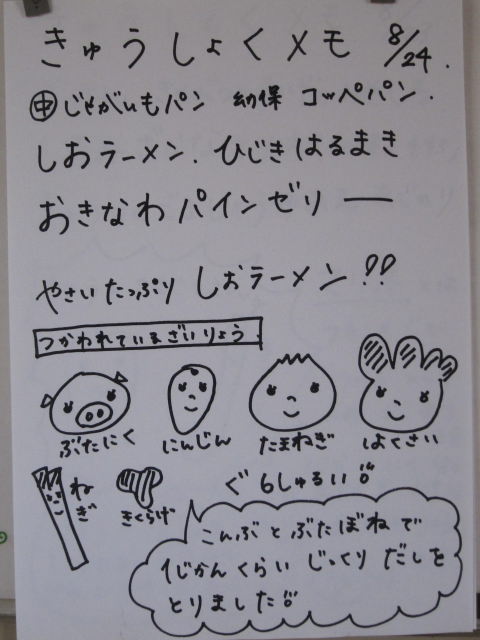 きゅうしょくメモ 8/24.
㊥じゃがいもパン 幼保 コッペパン.
しおラーメン. ひじきはるまき
おきなわパインゼリー
やさいたっぷり しおラーメン!!
つかわれているざいりょう
ぶたにく にんじん たまねぎ はくさい
ねぎ きくらげ ぐ6しゅるい!!
こんぶとぶたぼねで
1じかんくらい じっくり だしを
とりました!!